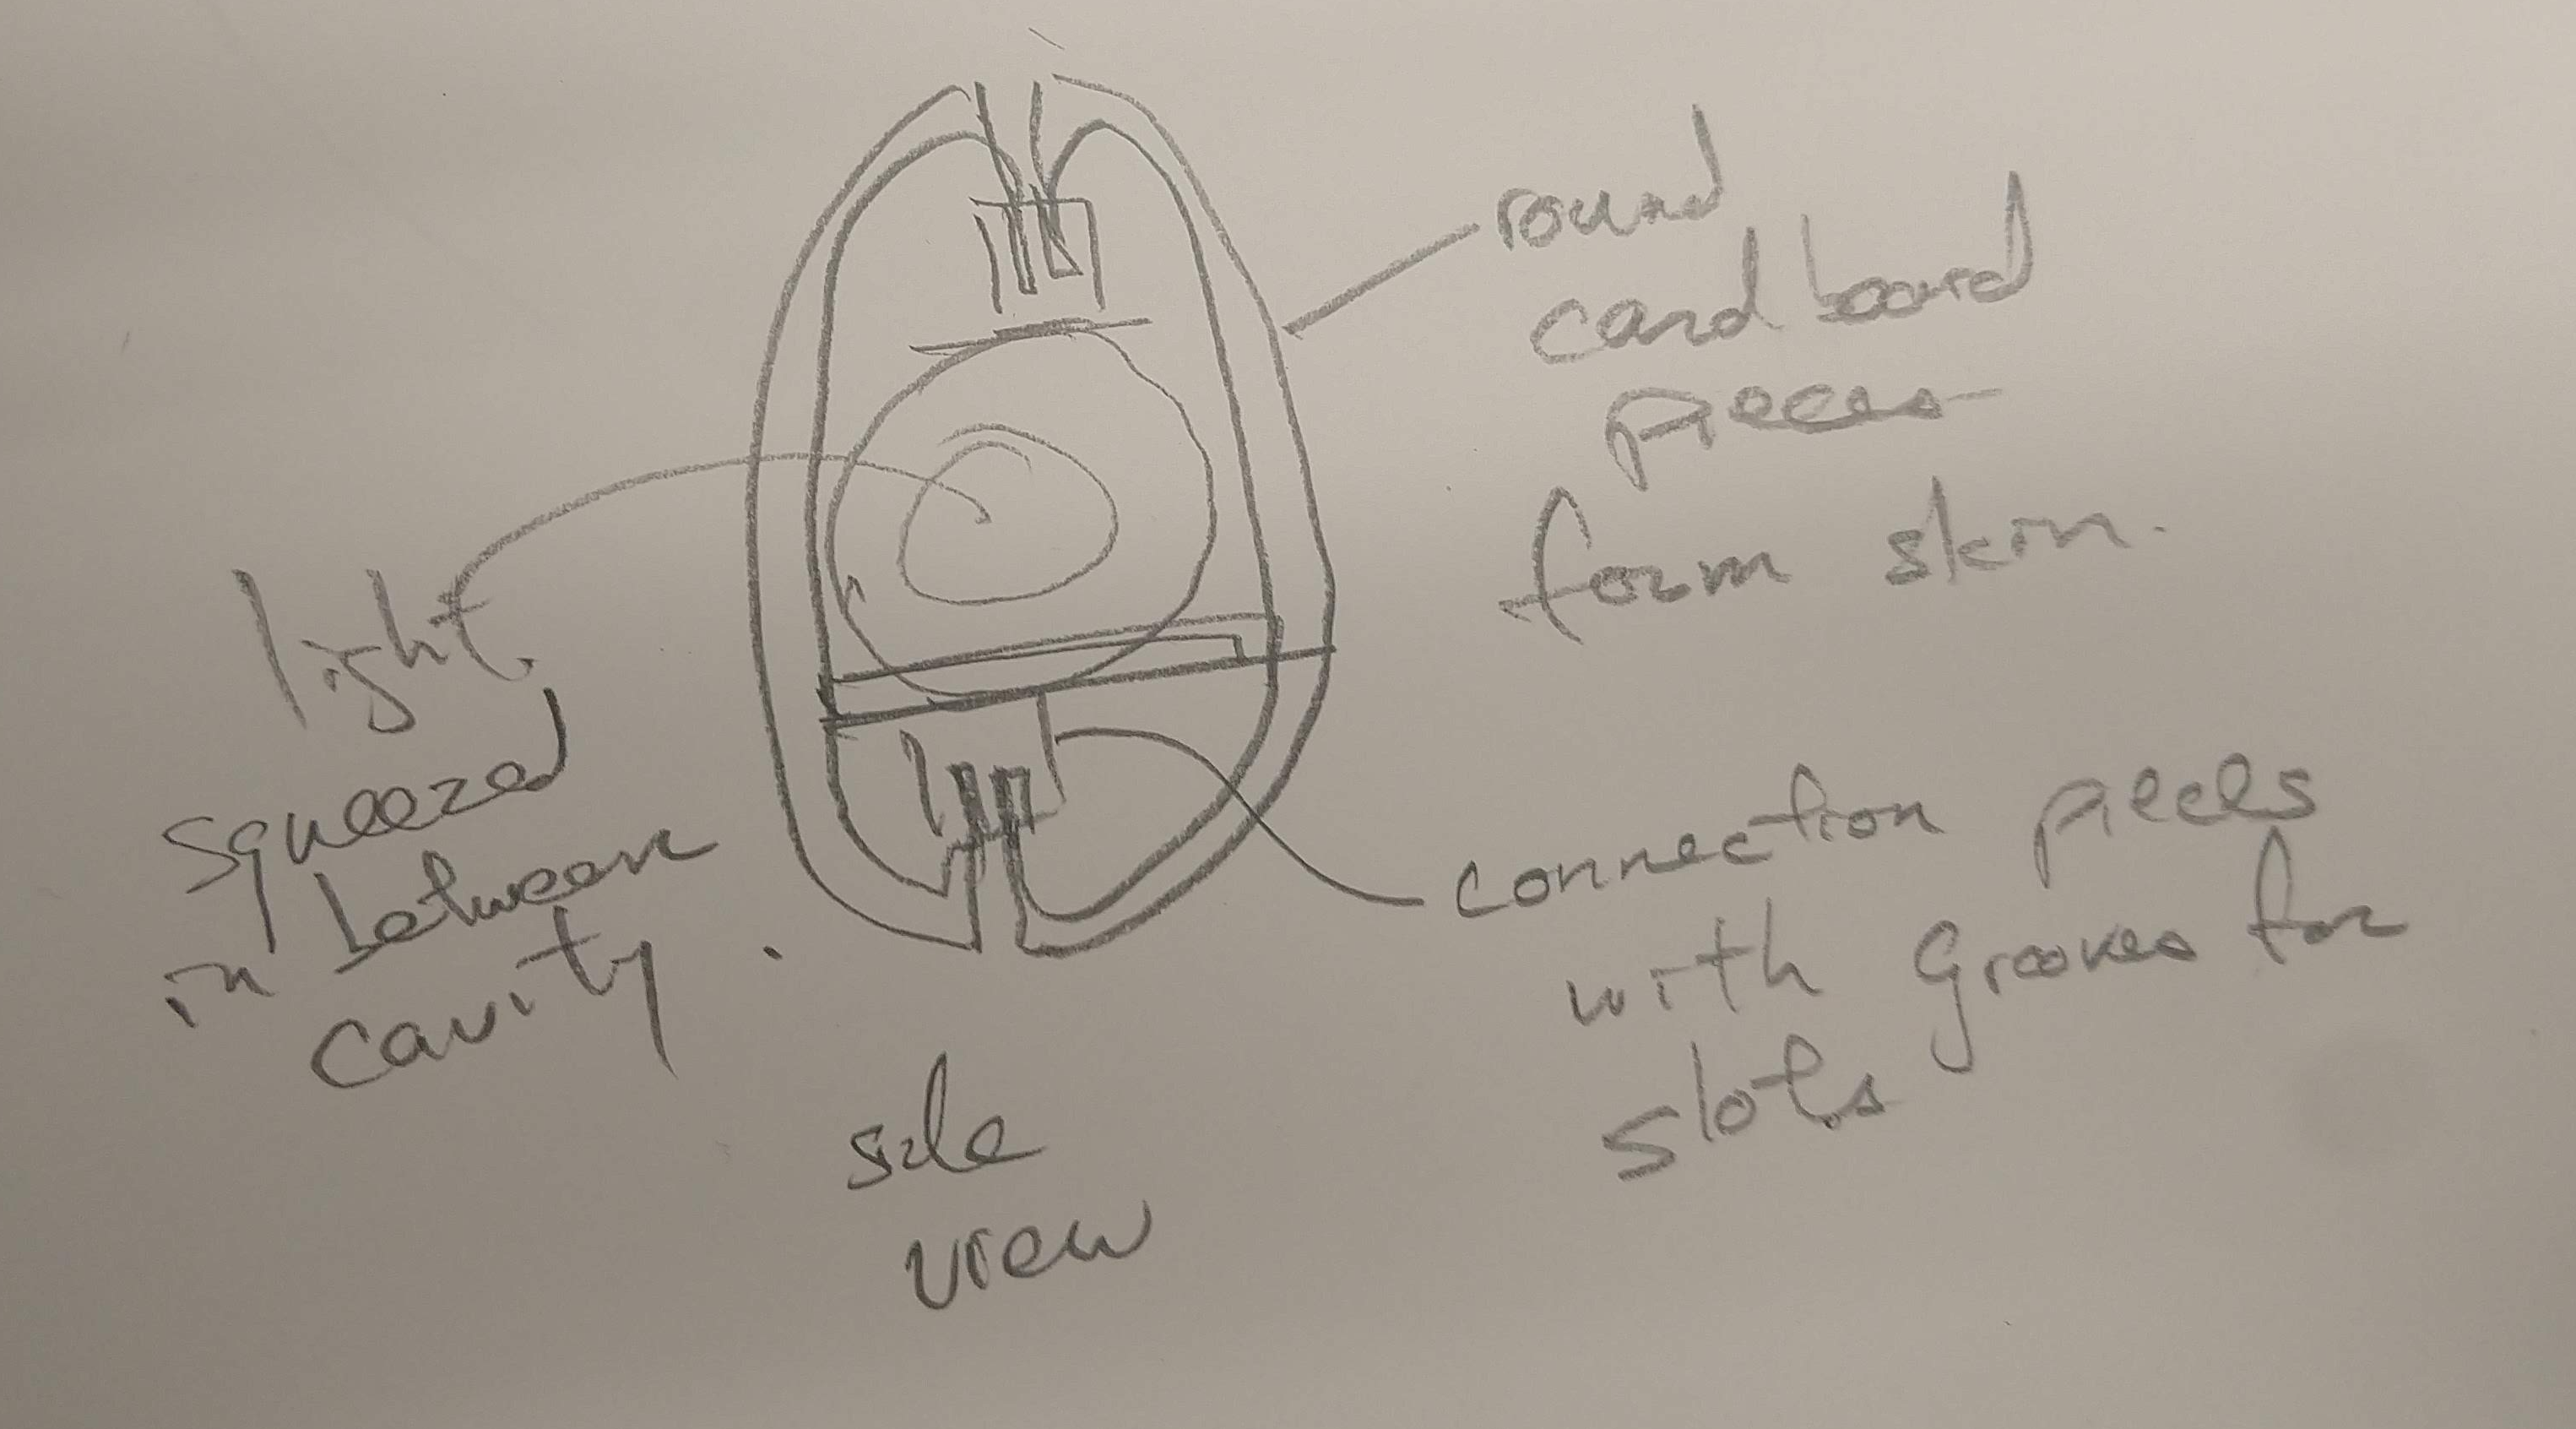 round
cardboard
pieces
form skin.
light
squeezed
in between
cavity.
connection pieces
with grooves for
slots
side
view